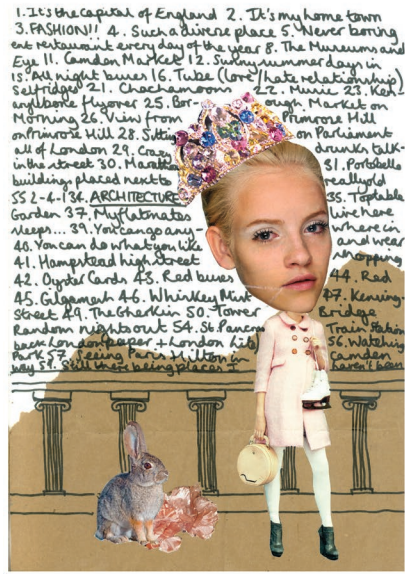 1. It's the capital of England 2. It's my home town
3. FASHION!! 4. Such a diverse place 5. Never boring
ent restaurant every day of the year 8. The Museums and
Eye 11. Camden Market 12. Sunny summer days in
15. All night buses 16. Tube (love/hate relationship)
Selfridges 21. 22. Music 23. Ken-
flyover 25. Bor- ough Market on
Morning 26. View from Primrose Hill
on Primrose Hill 28. Sitting on Parliament
all of London 29. Crazy drunks talk-
in the street 30. 31. Portobello
building placed next to really old
SS 2-4. 34. ARCHITECTURE 35. Toptable
Garden 37. My flatmates live here
sleeps... 39. You can go any- where in
40. You can do what you like and wear
41. Hampstead high street shopping
42. Oyster Cards 43. Red buses 44. Red
45. 46. Whiskey Mist 47. Kensing-
Street 49. The Gherkin 50. Tower Bridge
Random nights out 54. St. Pancras Train Station
back London paper + London Lite 56. Watching
Park 57. Seeing Paris Hilton in Camden
way 59. Still there being places I haven't been